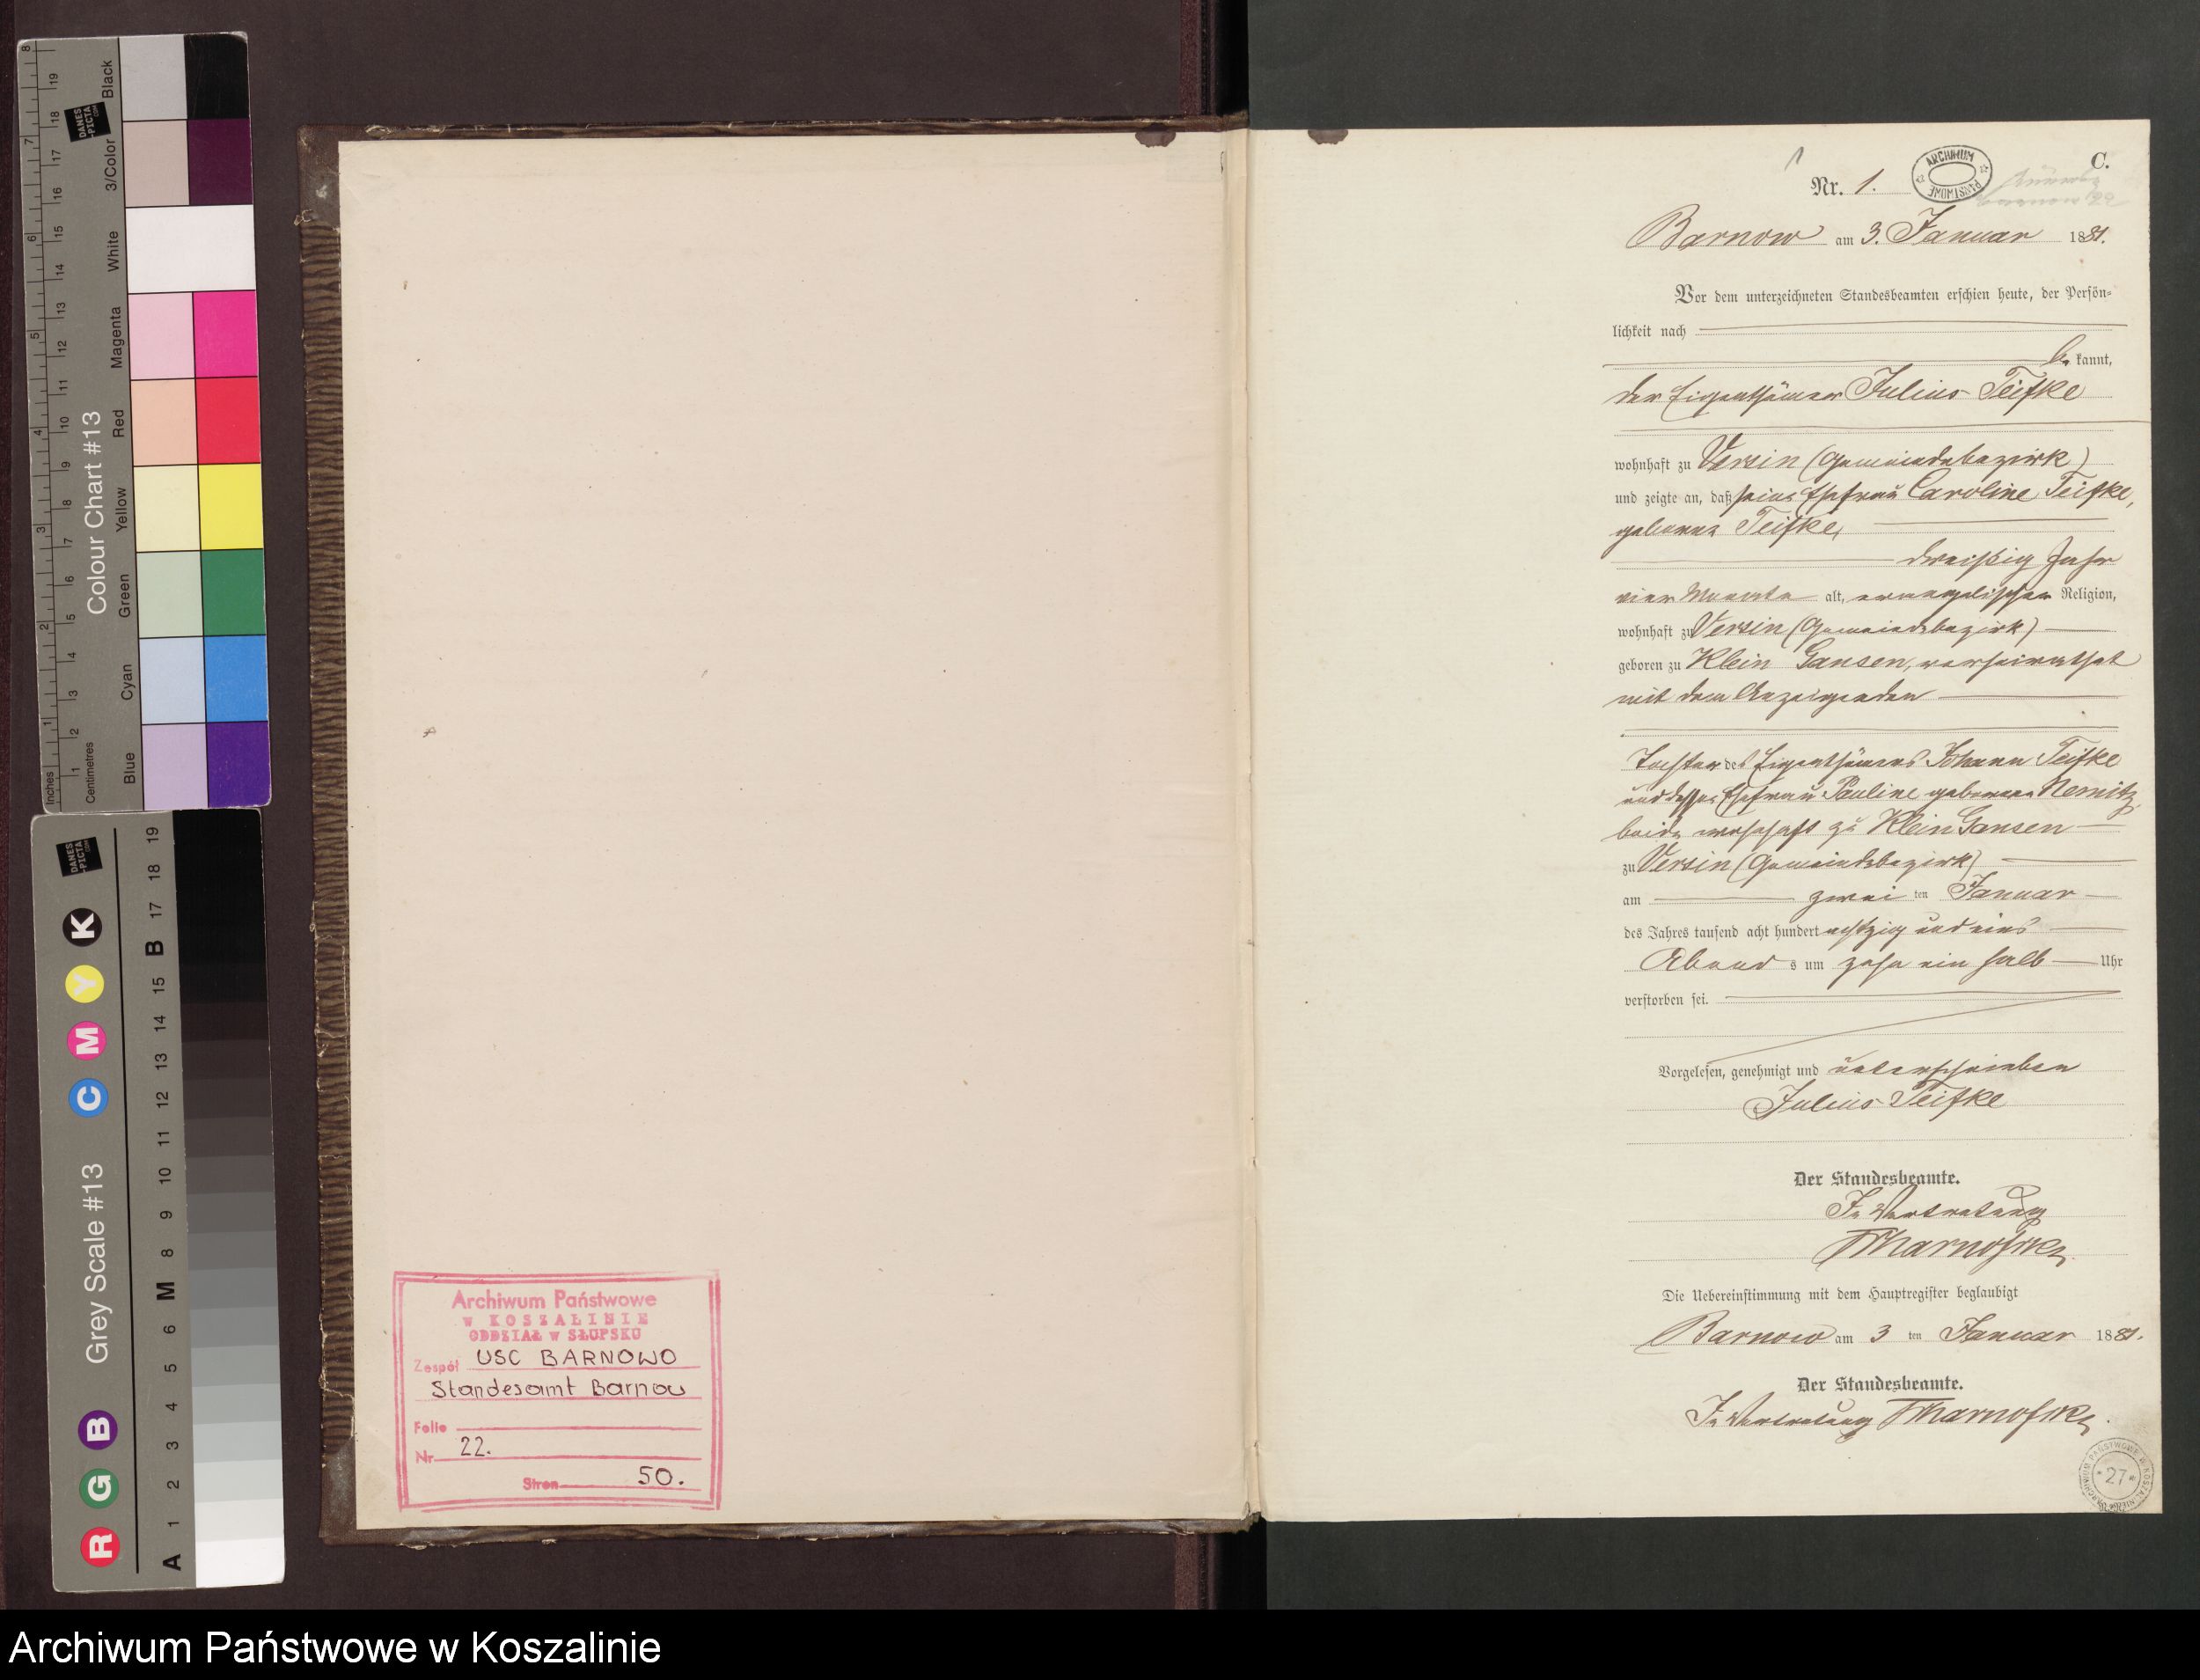 Archiwum Państwowe
w KOSZALINIE
ODDZIAŁ w SŁUPSKU
Zespół USC BARNOWO
Standesamt Barnow
Folio
Nr 22.
Stron 50.
C.
Nr. 1.
ARCHIWUM PAŃSTWOWE
Barnow am 3. Januar 1881.
Vor dem unterzeichneten Standesbeamten erschien heute, der Persön-
lichkeit nach
be kannt,
der Eigenthümer Julius Teifke
wohnhaft zu Versin (Gemeindebezirk)
und zeigte an, daß seine Ehefrau Caroline Teifke,
geborene Teifke,
dreißig Jahr
vier Monate alt, evangelischer Religion,
wohnhaft zu Versin (Gemeindebezirk)
geboren zu Klein Gansen, verheirathet
mit dem Anzeigenden
Tochter des Eigenthümers Johann Teifke
und dessen Ehefrau Pauline geborene Nemitz
beide wohnhaft zu Klein Gansen
zu Versin (Gemeindebezirk)
am zwei ten Januar
des Jahres tausend acht hundert achtzig und eins
Abend s um zehn ein halb Uhr
verstorben sei.
Vorgelesen, genehmigt und unterschrieben
Julius Teifke
Der Standesbeamte.
In Vertretung
Die Uebereinstimmung mit dem Hauptregister beglaubigt
Barnow am 3 ten Januar 1881.
Der Standesbeamte.
In Vertretung
ARCHIWUM PAŃSTWOWE W KOSZALINIE
* 27 *
8
7
6
5
4
3
2
1
Inches
19
18
17
16
15
14
13
12
11
10
9
8
7
6
5
4
3
2
1
Centimetres
DANES
-PICTA
.COM
Colour Chart #13
Black
3/Color
White
Magenta
Red
Yellow
Green
Cyan
Blue
DANES
-PICTA
.COM
Grey Scale #13
R G B C M Y K
A 1 2 3 4 5 6 M 8 9 10 11 12 13 14 15 B 17 18 19
Archiwum Państwowe w Koszalinie